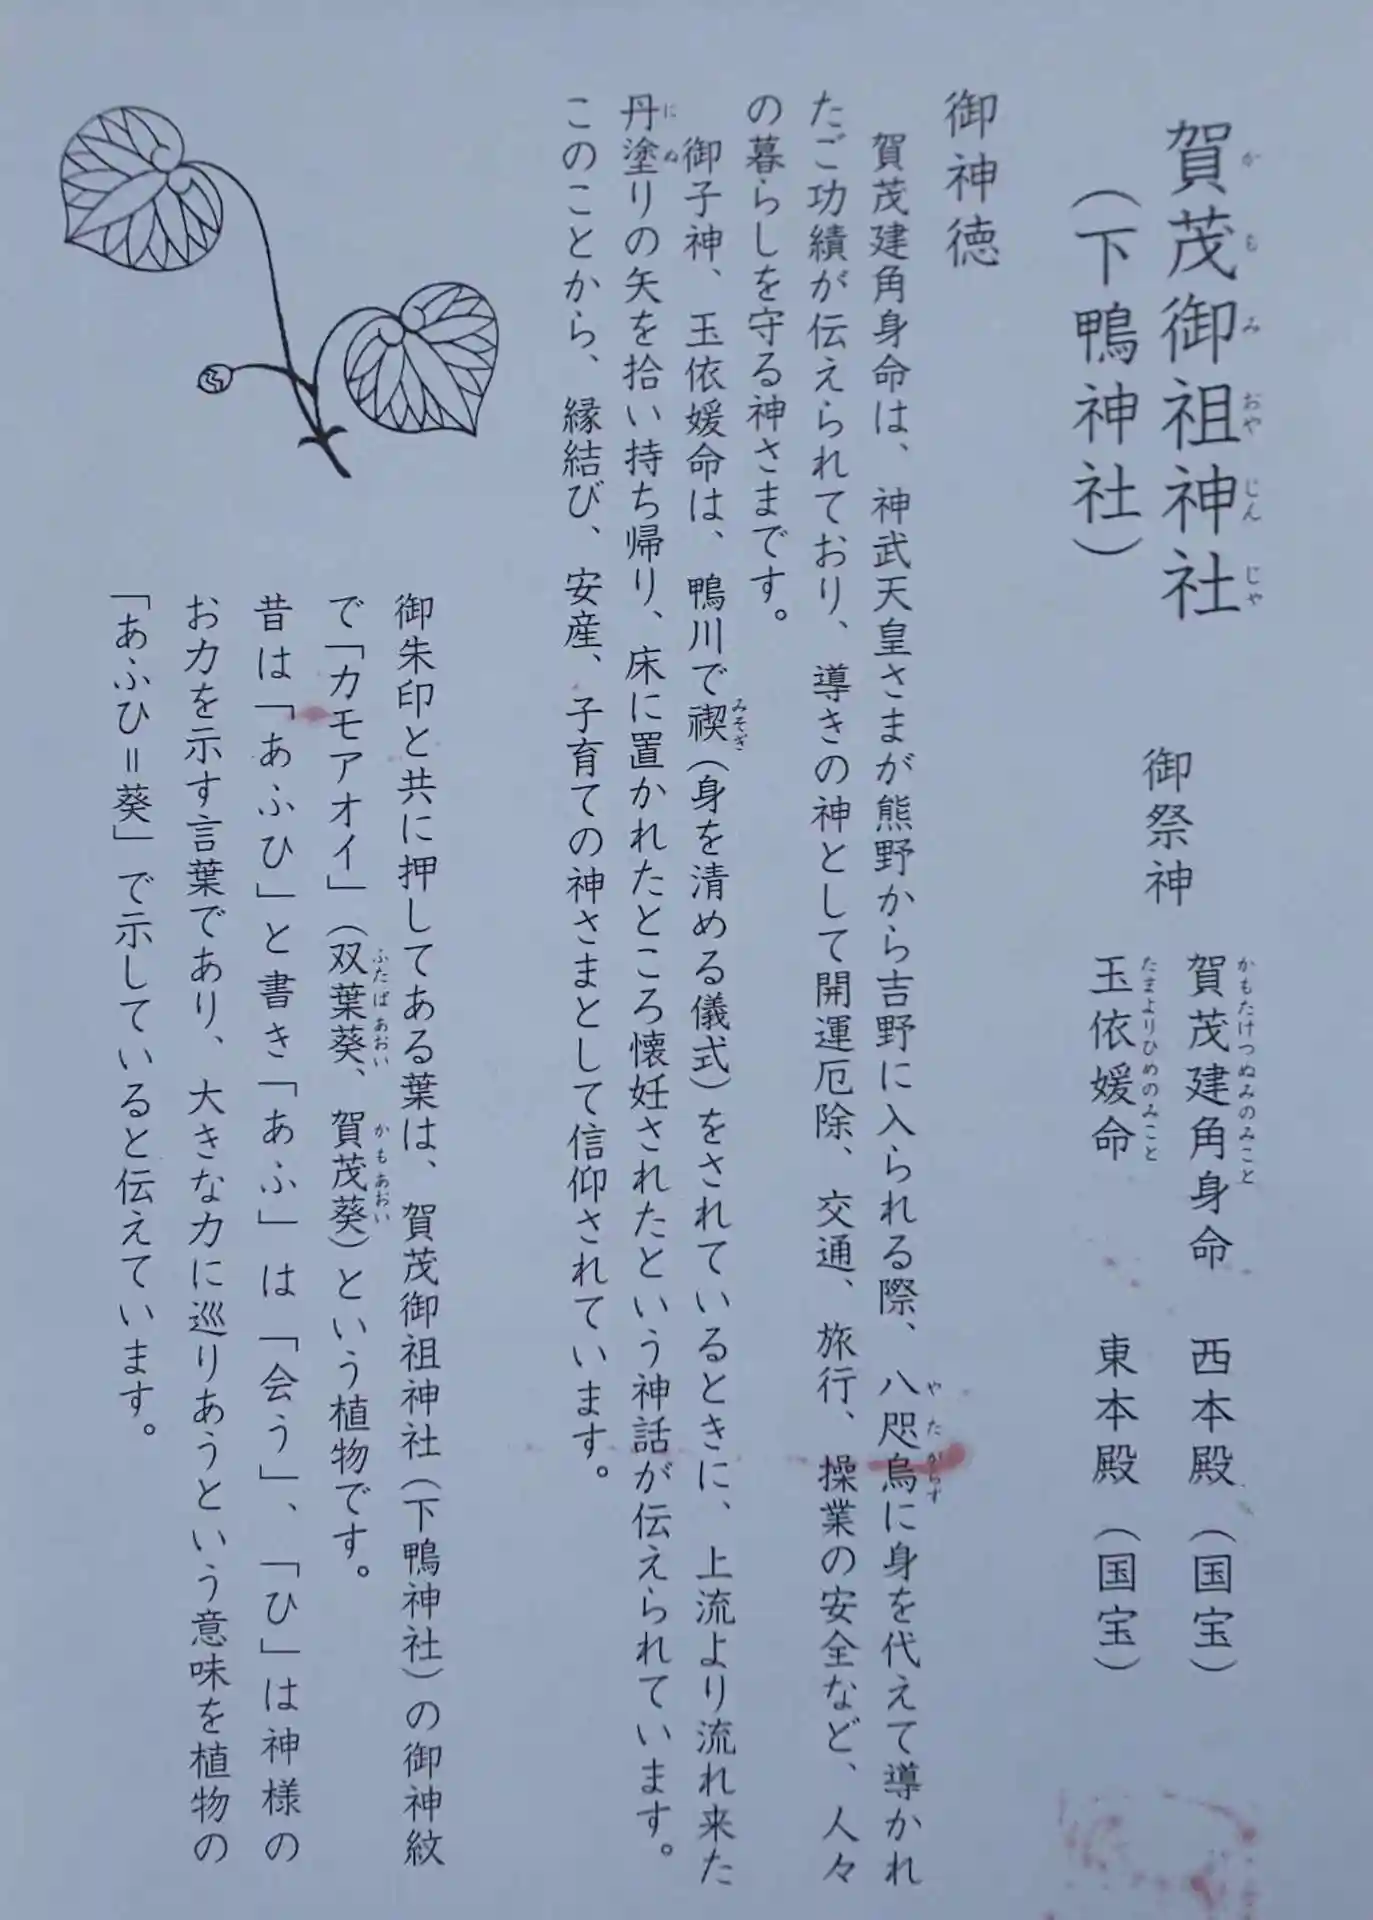 賀茂御祖神社
かもみおやじんじゃ
（下鴨神社）
御祭神
賀茂建角身命　西本殿（国宝）
かもたけつぬみのみこと
玉依媛命　東本殿（国宝）
たまよりひめのみこと
御神徳
賀茂建角身命は、神武天皇さまが熊野から吉野に入られる際、八咫烏に身を代えて導かれ
やたがらす
たご功績が伝えられており、導きの神として開運厄除、交通、旅行、操業の安全など、人々
の暮らしを守る神さまです。
御子神、玉依媛命は、鴨川で禊（身を清める儀式）をされているときに、上流より流れ来た
みそぎ
丹塗りの矢を拾い持ち帰り、床に置かれたところ懐妊されたという神話が伝えられています。
にぬ
このことから、縁結び、安産、子育ての神さまとして信仰されています。
御朱印と共に押してある葉は、賀茂御祖神社（下鴨神社）の御神紋
で「カモアオイ」（双葉葵、賀茂葵）という植物です。
ふたばあおい　かもあおい
昔は「あふひ」と書き「あふ」は「会う」、「ひ」は神様の
お力を示す言葉であり、大きな力に巡りあうという意味を植物の
「あふひ＝葵」で示していると伝えています。